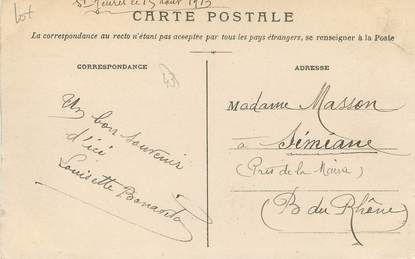 lot
St Jeures le 15 août 1913
CARTE POSTALE
La correspondance au recto n'étant pas acceptée par tous les pays étrangers, se renseigner à la Poste
CORRESPONDANCE
ADRESSE
Un bon souvenir
d'ici
Louisette
Madame Masson
à Simiane
(Près de la
(B du Rhône)